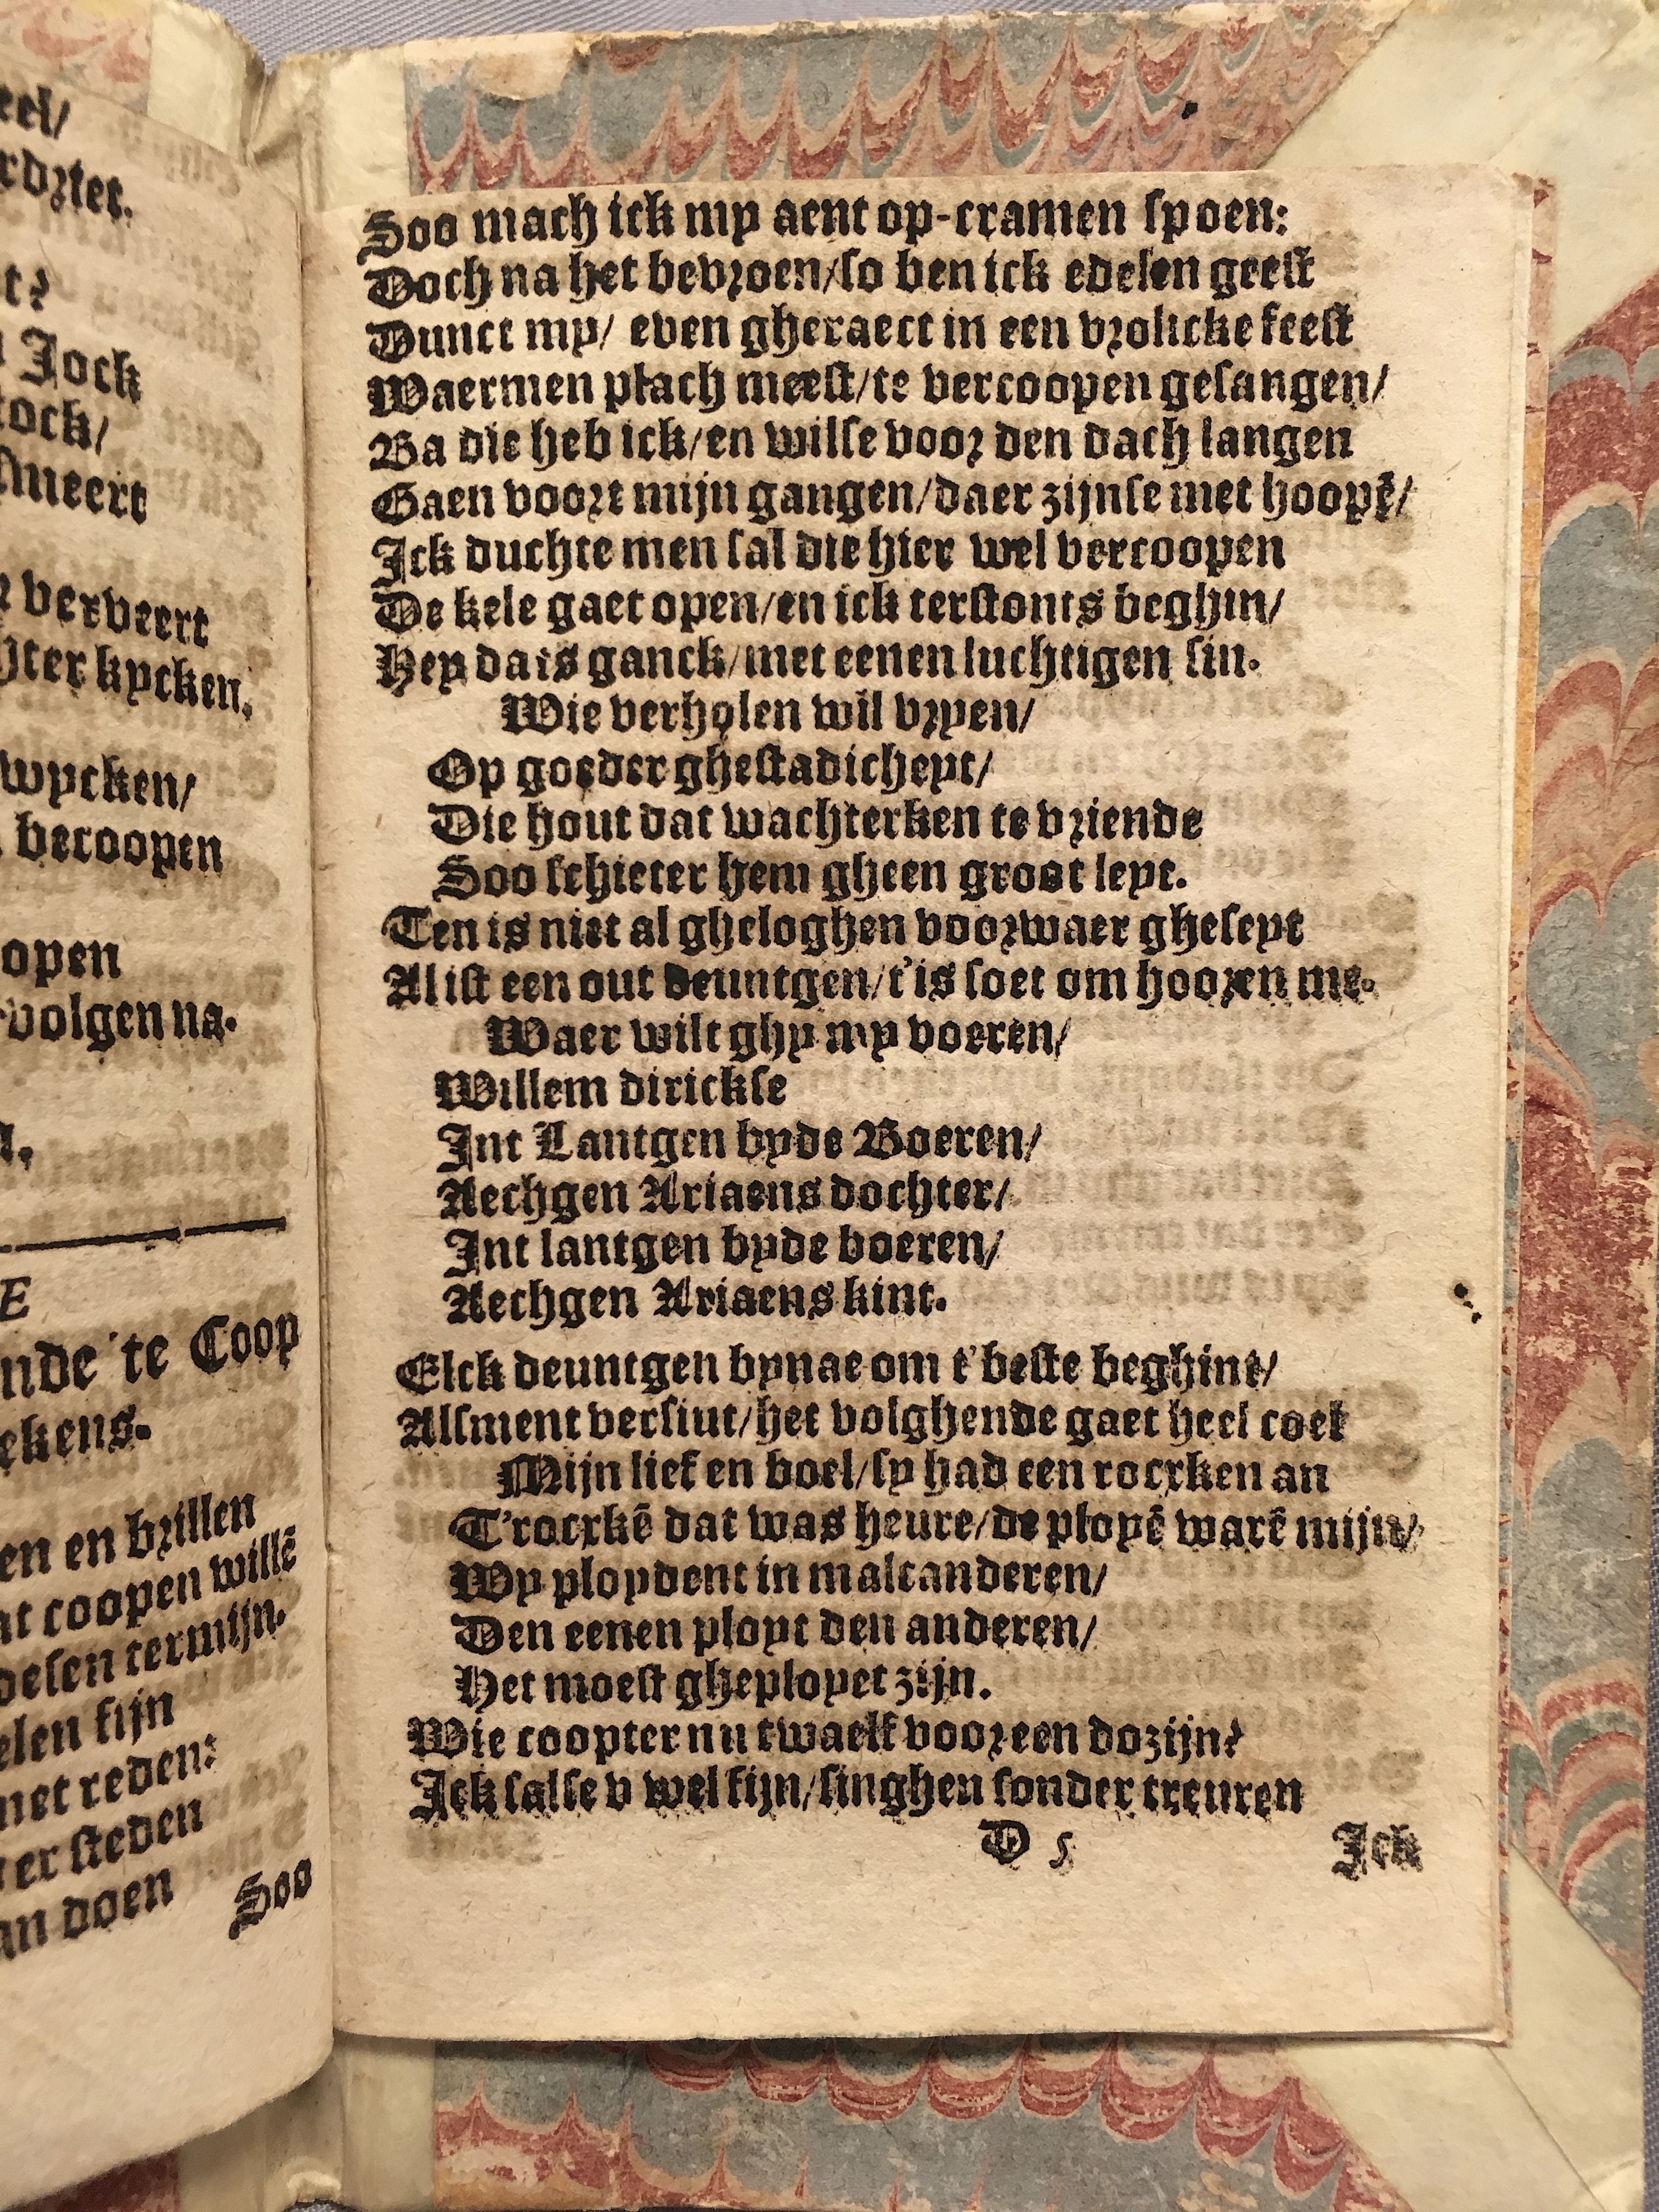 eel/
t?
Jock
tock/
verveert
kycken.
wycken/
becoopen
open
volgen na.
E
nde te Coop
ekens.
en en brillen
coopen willē
desen termijn.
elen fijn
met reden:
er steden
an doen
Soo
Soo mach ick my aent op-cramen spoen:
Doch na het bevroen/so ben ick edelen geest
Dunct my/ even gheraect in een vrolicke feest
Waermen plach meest/te vercoopen gesangen/
Ba die heb ick/en wilse voor den dach langen
Gaen voort mijn gangen/daer zijnse met hoopē/
Ick duchte men sal die hier wel vercoopen
De kele gaet open/en ick terstonts beghin/
Hey da is ganck/met eenen luchtigen sin.
Wie verholen wil vryen/
Op goeder ghestadicheyt/
Die hout dat wachterken te vriende
Soo schieter hem gheen groot leyt.
Ten is niet al gheloghen voorwaer gheseyt
Al ist een out deuntgen/t'is soet om hooren me.
Waer wilt ghy my voeren/
Willem dirickse
Int Lantgen byde Boeren/
Aechgen Ariaens dochter/
Int lantgen byde boeren/
Aechgen Ariaens kint.
Elck deuntgen bynae om t'beste beghint/
Alsment versint/het volghende gaet heel coel
Mijn lief en boel/sy had een rocxken an
T'rocxkē dat was heure/de ployē warē mijn/
Wy ploydent in malcanderen/
Den eenen ployt den anderen/
Het moest gheployet zijn.
Wie coopter nu twaelf voor een dozijn?
Ick salse v wel fijn/singhen sonder treuren
D 5 Ick